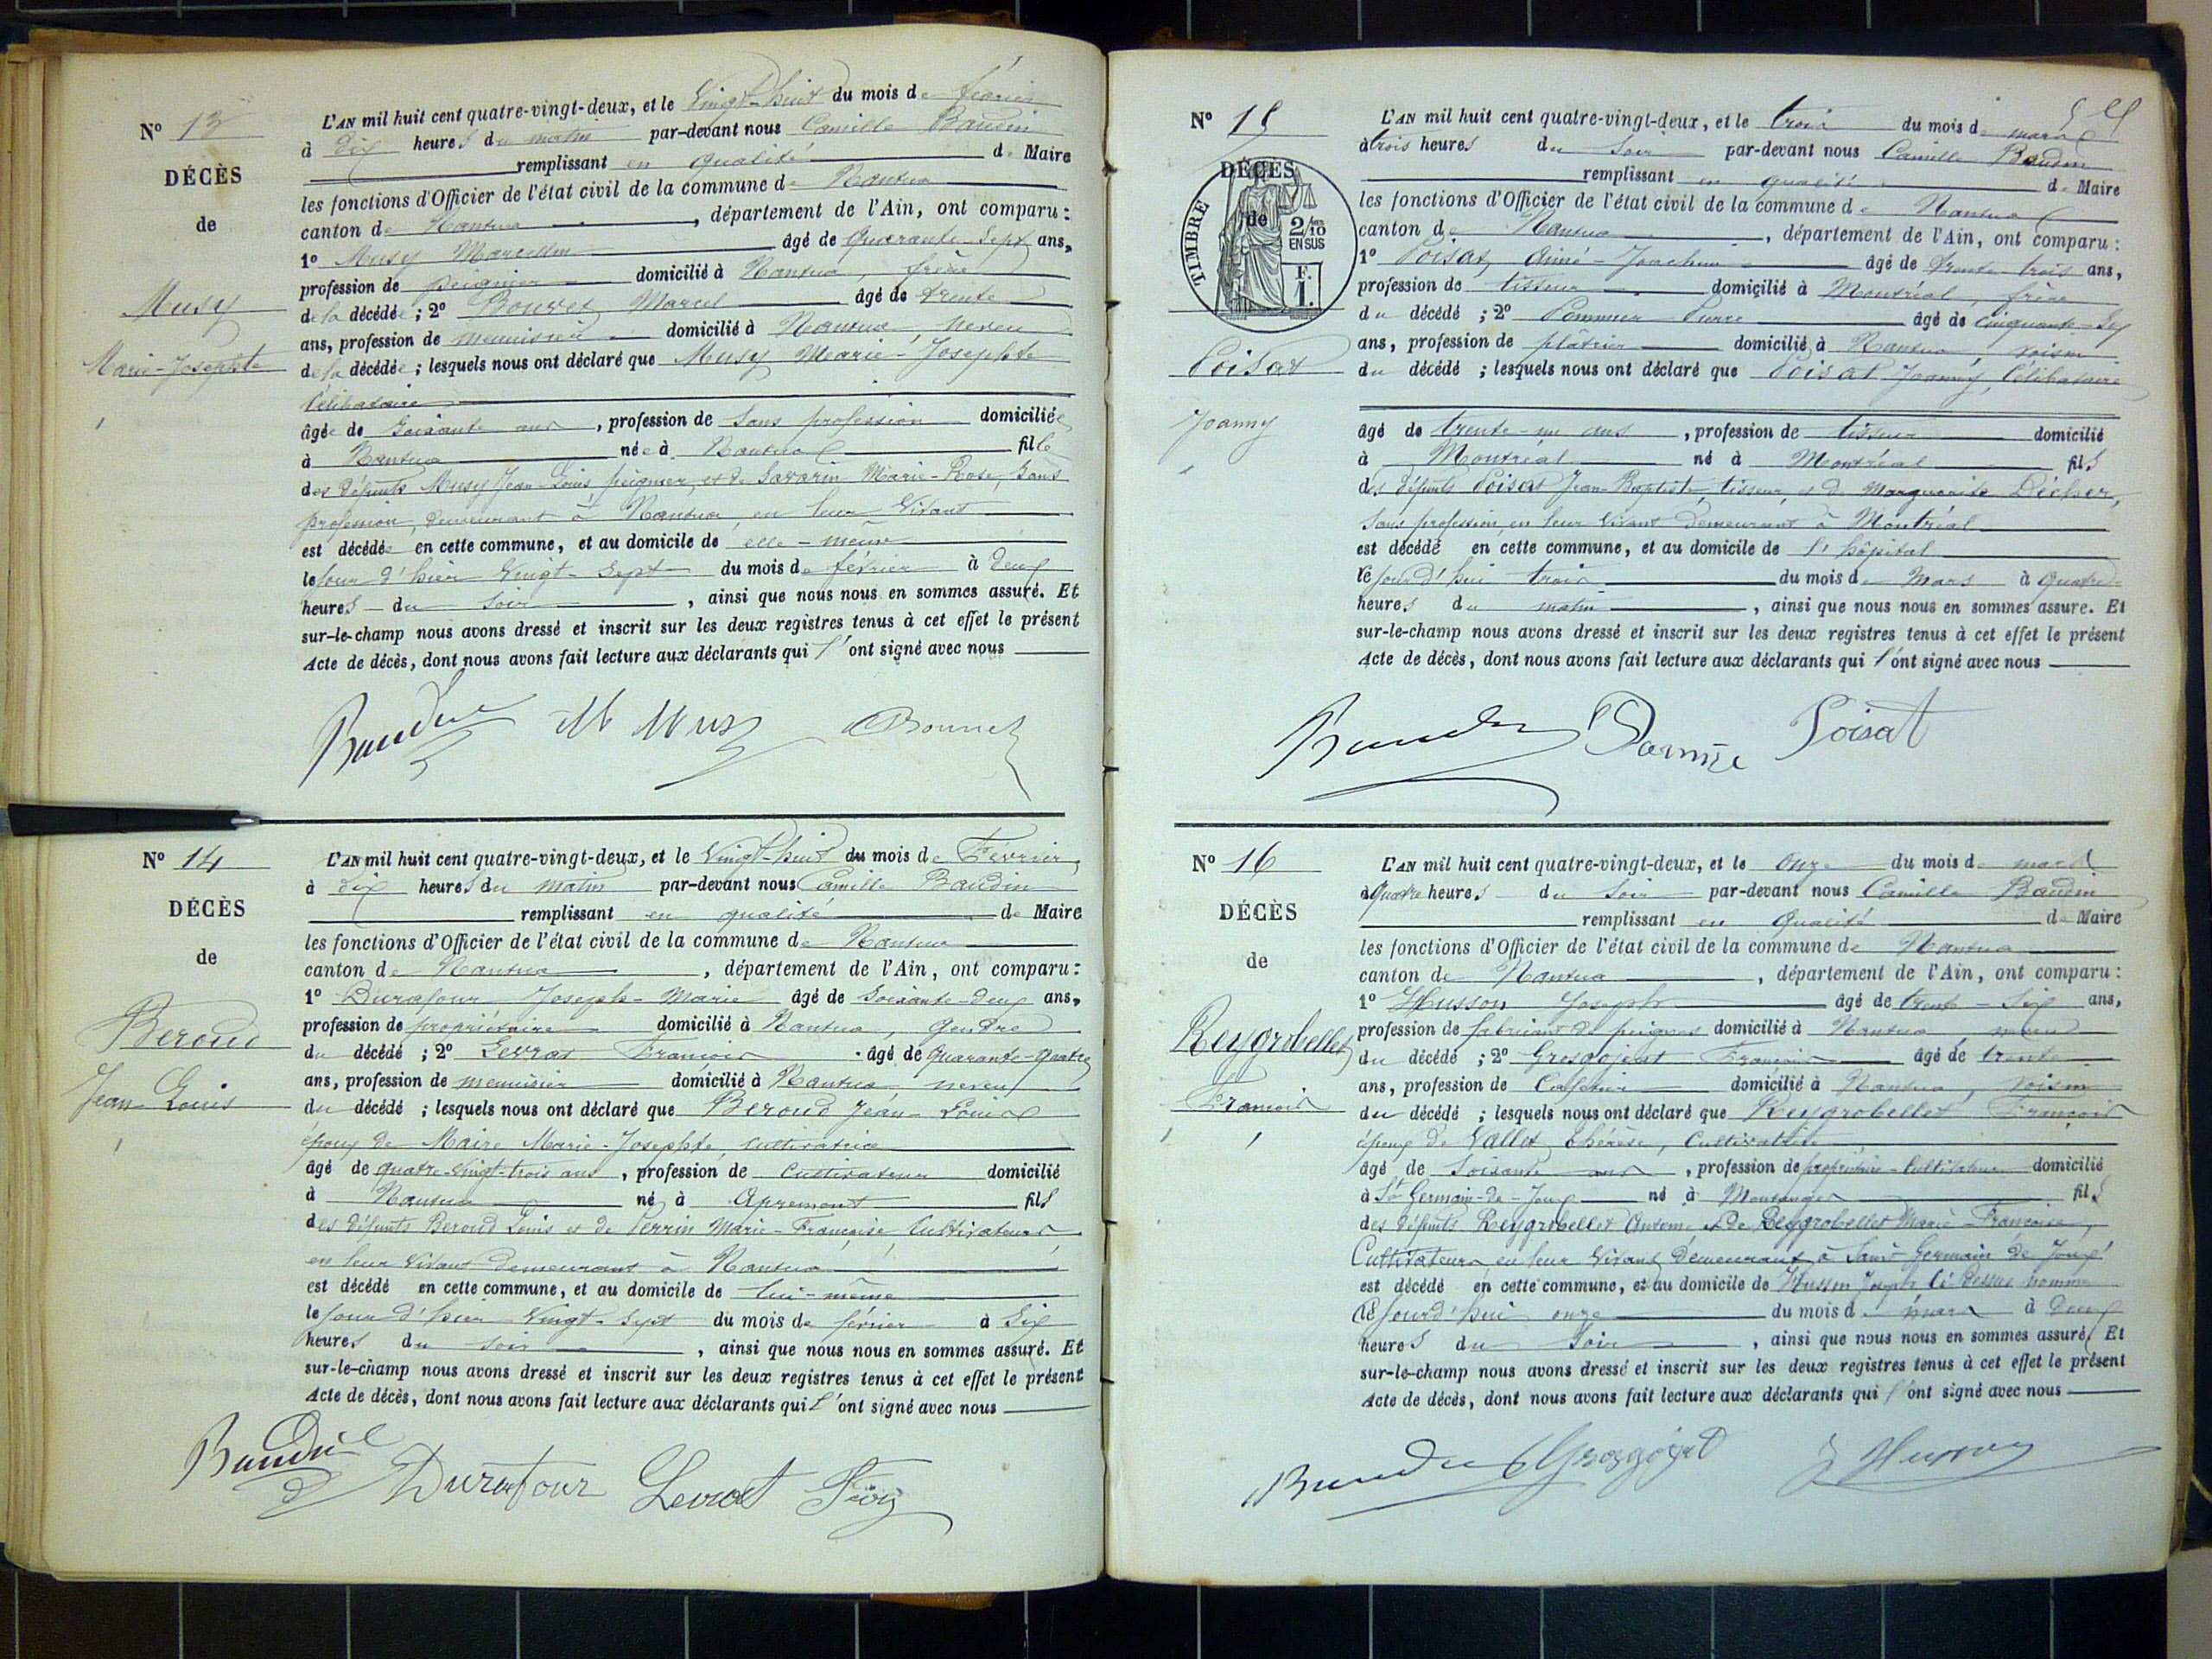 N° 13
DÉCÈS
de
Musy
Marie-Josephte
L'AN mil huit cent quatre-vingt-deux, et le Vingt-huit du mois de février
à dix heures du matin par-devant nous Camille Baudin
remplissant en qualité de Maire
les fonctions d'Officier de l'état civil de la commune de Nantua
canton de Nantua, département de l'Ain, ont comparu :
1° Musy Marcellin âgé de quarante-sept ans,
profession de peignier domicilié à Nantua, frère
de la décédée ; 2° Marcel âgé de trente
ans, profession de menuisier domicilié à Nantua neveu
de la décédée ; lesquels nous ont déclaré que Musy Marie-Josephte
Célibataire
âgée de soixante ans, profession de sans profession domiciliée
à Nantua née à Nantua fille
des défunts Musy Jean-Louis peignier, et de Savarin Marie-Rose, sans
profession, demeurant à Nantua, en leur vivant
est décédée en cette commune, et au domicile de elle-même
le jour d'hier vingt-sept du mois de février à deux
heures du soir, ainsi que nous nous en sommes assuré. Et
sur-le-champ nous avons dressé et inscrit sur les deux registres tenus à cet effet le présent
Acte de décès, dont nous avons fait lecture aux déclarants qui l'ont signé avec nous
Baudin M Musy
N° 14
DÉCÈS
de
Beroud
Jean-Louis
L'AN mil huit cent quatre-vingt-deux, et le Vingt-huit du mois de Fevrier,
à dix heures du matin par-devant nous Camille Baudin
remplissant en qualité de Maire
les fonctions d'Officier de l'état civil de la commune de Nantua
canton de Nantua, département de l'Ain, ont comparu :
1° Durafour Joseph-Marie âgé de soixante-deux ans,
profession de propriétaire domicilié à Nantua, gendre
du décédé ; 2° Levrat François âgé de quarante-quatre
ans, profession de menuisier domicilié à Nantua neveu
du décédé ; lesquels nous ont déclaré que Beroud Jean-Louis
époux de Maire Marie-Josephte, cultivatrice
âgé de quatre-vingt-trois ans, profession de cultivateur domicilié
à Nantua né à Apremont fils
des défunts Beroud Louis et de Perrin Marie-Françoise Cultivateurs
en leur vivant demeurant à Nantua
est décédé en cette commune, et au domicile de lui-même
le jour d'hier vingt-sept du mois de février à six
heures du soir, ainsi que nous nous en sommes assuré. Et
sur-le-champ nous avons dressé et inscrit sur les deux registres tenus à cet effet le présent
Acte de décès, dont nous avons fait lecture aux déclarants qui l'ont signé avec nous
Baudin Durafour Levrat
N° 15
DÉCÈS
de
TIMBRE
2/10
EN SUS
F.
1.
Poisat
Joanny
L'AN mil huit cent quatre-vingt-deux, et le trois du mois de mars
à trois heures du soir par-devant nous Camille Baudin
remplissant en qualité de Maire
les fonctions d'Officier de l'état civil de la commune de Nantua
canton de Nantua, département de l'Ain, ont comparu :
1° Poisat, Aimé-Joachim âgé de trente-trois ans,
profession de tisseur domicilié à Montréal, frère
du décédé ; 2° Pierre âgé de cinquante-six
ans, profession de plâtrier domicilié à Nantua, voisin
du décédé ; lesquels nous ont déclaré que Poisat Joanny, Célibataire
âgé de trente-un ans, profession de tisseur domicilié
à Montréal né à Montréal fils
des défunts Poisat Jean-Baptiste, tisseur, et de Marguerite
sans profession en leur vivant demeurant à Montréal
est décédé en cette commune, et au domicile de l'hôpital
ce jourd'hui trois du mois de Mars à quatre
heures du matin, ainsi que nous nous en sommes assuré. Et
sur-le-champ nous avons dressé et inscrit sur les deux registres tenus à cet effet le présent
Acte de décès, dont nous avons fait lecture aux déclarants qui l'ont signé avec nous
Baudin Poisat
N° 16
DÉCÈS
de
Reygrobellet
François
L'AN mil huit cent quatre-vingt-deux, et le onze du mois de mars
à quatre heures du soir par-devant nous Camille Baudin
remplissant en qualité de Maire
les fonctions d'Officier de l'état civil de la commune de Nantua
canton de Nantua, département de l'Ain, ont comparu :
1° Husson Joseph âgé de trente-six ans,
profession de fabricant de peignes domicilié à Nantua, neveu
du décédé ; 2° Grosgojeat François âgé de trente
ans, profession de Cafetier domicilié à Nantua, voisin
du décédé ; lesquels nous ont déclaré que Reygrobellet François
époux de Vallet Thérèse, Cultivatrice
âgé de soixante ans, profession de propriétaire-Cultivateur domicilié
à St Germain-de-Joux né à Montanges fils
des défunts Reygrobellet Antoine et de Reygrobellet Marie-Françoise,
Cultivateurs en leur vivant demeurant à Saint Germain de Joux
est décédé en cette commune, et au domicile de Husson Joseph ci-dessus nommé
ce jourd'hui onze du mois de mars à deux
heures du soir, ainsi que nous nous en sommes assuré. Et
sur-le-champ nous avons dressé et inscrit sur les deux registres tenus à cet effet le présent
Acte de décès, dont nous avons fait lecture aux déclarants qui l'ont signé avec nous
Baudin Grosgojat J Husson